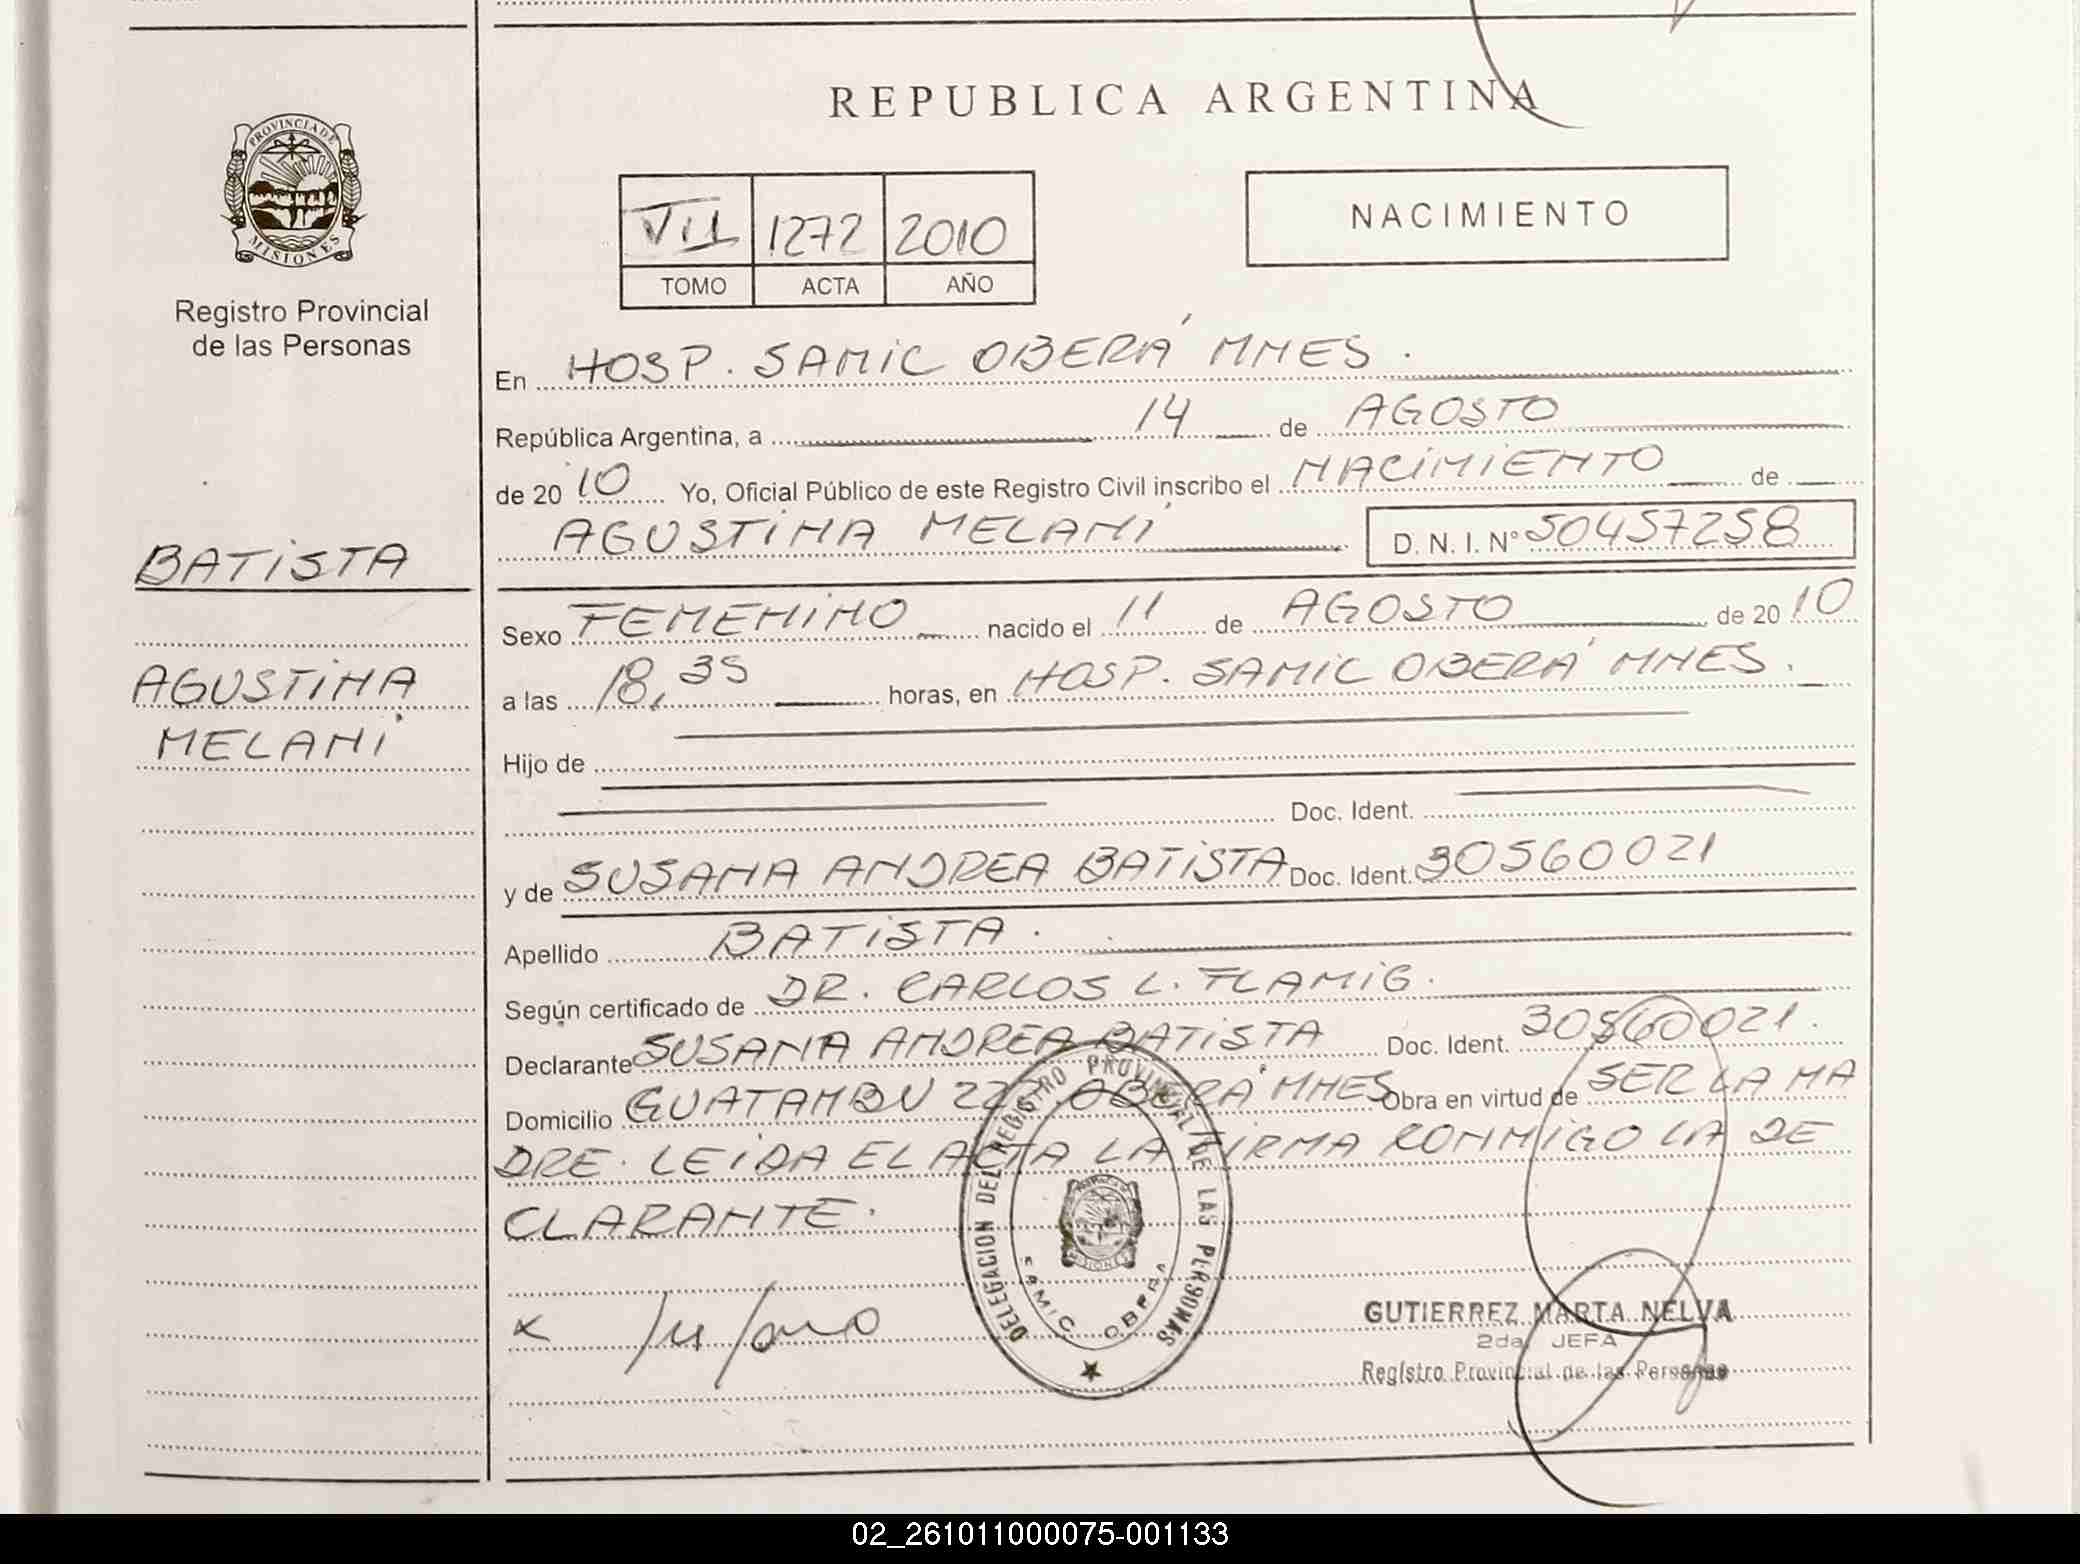 REPUBLICA ARGENTINA
PROVINCIA DE
MISIONES
Registro Provincial
de las Personas
VII 1272 2010
TOMO ACTA AÑO
NACIMIENTO
En HOSP. SAMIC OBERÁ MNES.
República Argentina, a 14 de AGOSTO
de 2010 Yo, Oficial Público de este Registro Civil inscribo el NACIMIENTO de
AGUSTINA MELANI D. N. I. N° 50457258
BATISTA
AGUSTINA
MELANI
Sexo FEMENINO nacido el 11 de AGOSTO de 2010
a las 18,35 horas, en HOSP. SAMIC OBERÁ MNES.
Hijo de
Doc. Ident.
y de SUSANA ANDREA BATISTA Doc. Ident. 30560021
Apellido BATISTA.
Según certificado de DR. CARLOS L. FLAMIG.
Declarante SUSANA ANDREA BATISTA Doc. Ident. 30560021.
Domicilio GUATAMBU OBERÁ MNES Obra en virtud de SER LA MA
DRE. LEIDA EL ACTA LA FIRMA CONMIGO LA DE
CLARANTE.
DELEGACION DEL REGISTRO PROVINCIAL DE LAS PERSONAS
SAMIC OBERA
GUTIERREZ MARTA NELVA
2da. JEFA
Registro Provincial de las Personas
02_261011000075-001133